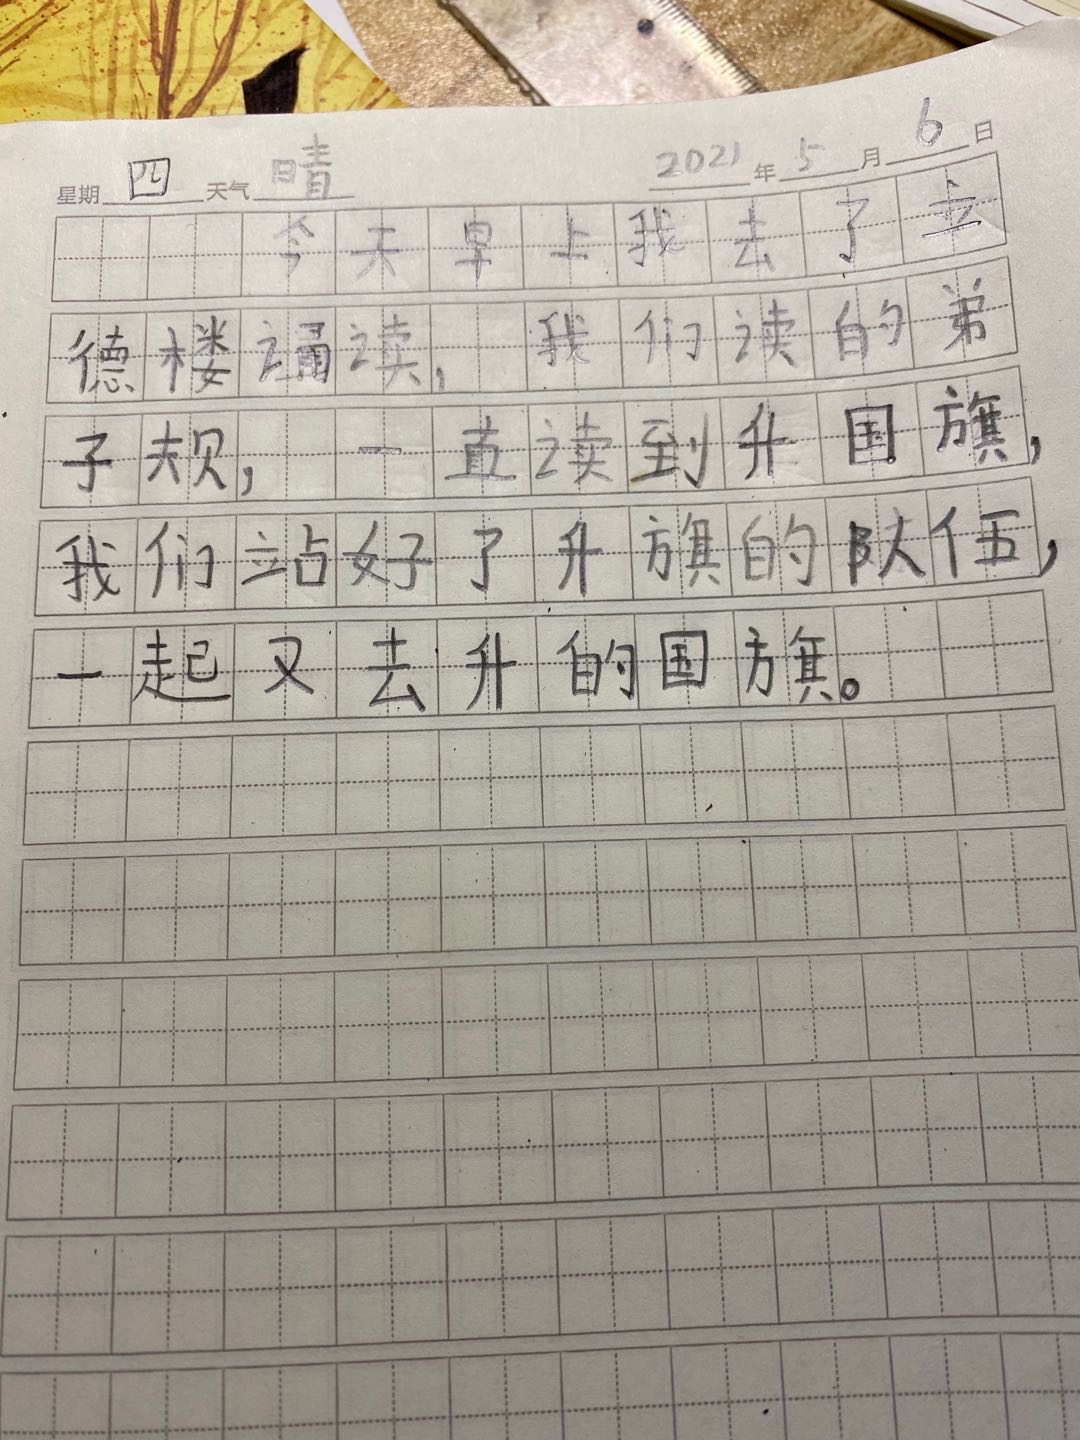 星期 四 天气 晴 2021 年 5 月 6 日
今天早上我去了立
德楼诵读，我们读的弟
子规，一直读到升国旗，
我们站好了升旗的队伍，
一起又去升的国旗。